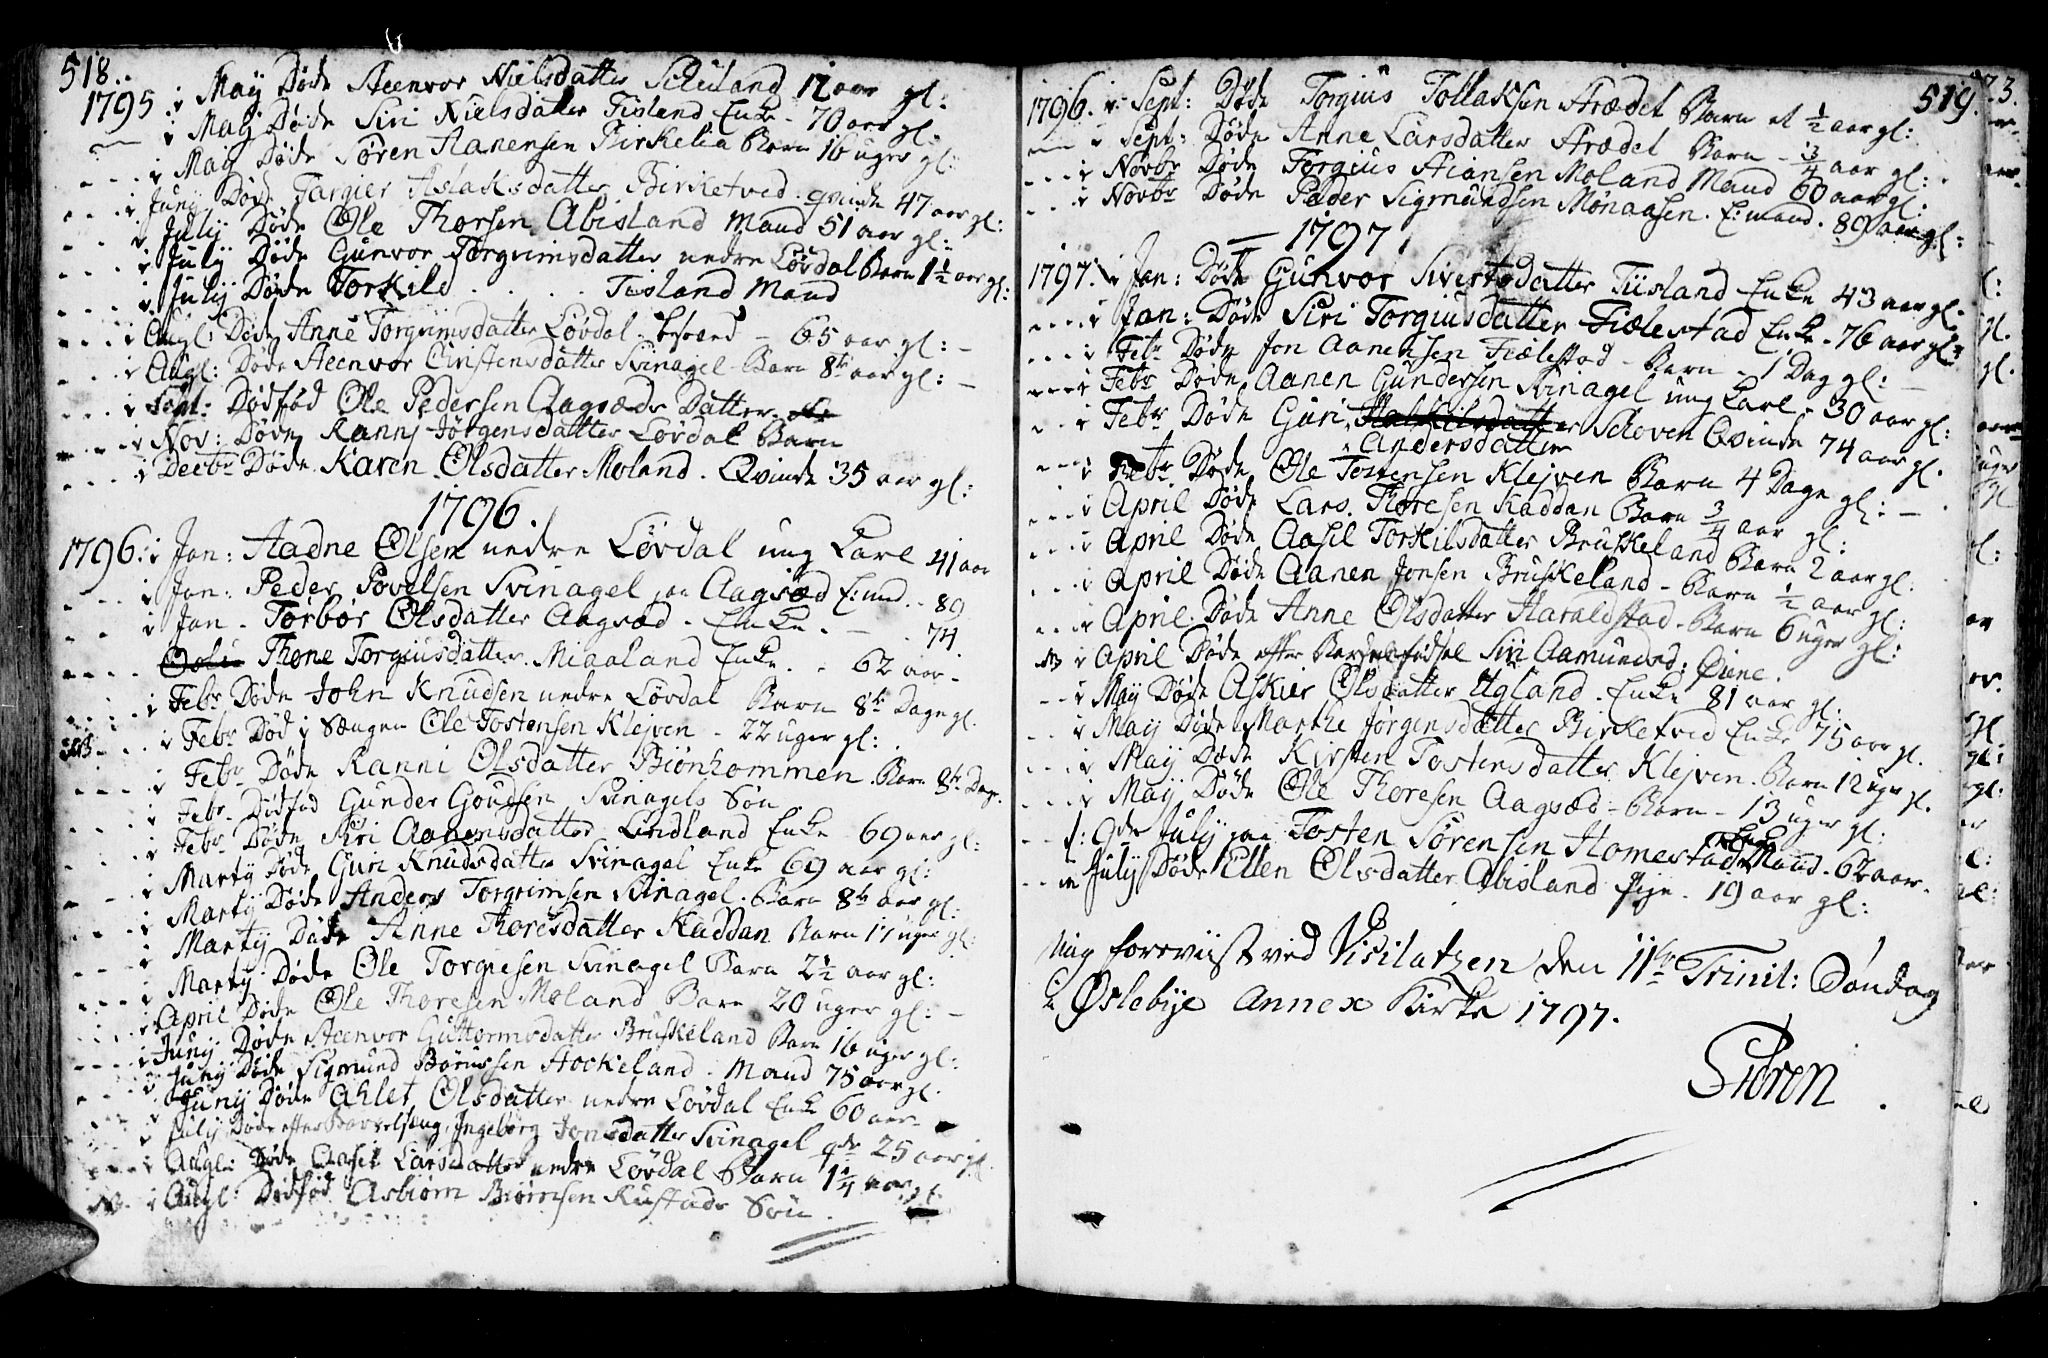 518.
1795 i May Døde Steenvor Nielsdatter 12 aar gl:
i May Døde Siri Nielsdatter Tisland Enke - 70 aar gl:
i May Døde Søren Aanensen Birkelia Barn 16 uger gl:
i Juny Døde Targier Aslaksdatter Birketved qvinde 47 aar gl:
i July Døde Ole Thorsen Abisland Mand 51 aar gl:
i July Døde Gunvor Torgrimsdatter nedre Løvdal Barn 1 1/2 aar gl:
i Julij Døde Torkild . . . . Tisland Mand
i Augl: Døde Anne Torgrimsdatter Løvdal - 65 aar gl: -
i Augl: Døde Steenvor Svinagel Barn 8te aar gl: -
i Sept: Dødfød Ole Pedersen Aagsæds Datter.
i Nov: Døde Ranni Jørgensdatter Løvdal Barn
i Decbr Døde Karen Olsdatter Moland . Qvinde 35 aar gl:
1796.
1796. i Jan: Aadne Olsen nedre Løvdal ung Karl 41 aar
i Jan: Peder Povelsen Svinagel paa Aagsæd E:mand . 89
i Jan - Torbør Olsdatter Aagsæd - Enke . - . 74
Thone Torgiusdatter Miaaland Enke . - 62 aar -
i Febr Døde John Knudsen nedre Løvdal Barn 8te Dage gl.
i Febr Død i Sængen Ole Tostensen Klejven - 22 uger gl:
i Febr Døde Ranni Olsdatter Biønhommen . Barn 8te Dag.
i Febr Dødfød Gunder Svinagels Søn
i Febr Døde Siri Aanensdatter Lindland Enke 69 aar gl:
i Marty Døde Guri Knudsdatter Svinagel Enke 69 aar gl:
i Marty Døde Anders Torgrimsen Svinagel . Barn 8te aar gl:
i Marty Døde Anne Thoresdatter Kaddan Barn 11 uger gl:
i Marty Døde Ole Torgiesen Svinagel Barn 2 1/2 aar gl:
i April Døde Ole Thoresen Moland Barn 20 uger gl: -
i Juny Døde Steenvor Guttormsdatter Bruskeland Barn 16 uger gl:
i Juny Døde Sigmund Børuesen Stockeland . Mand 75 aar gl.
i Juny Døde Ahlet Olsdatter nedre Løvdal Enke 60 aar
i July Døde efter Barselsæng Ingebørg Jonsdatter Svinagel 25 aar gl.
i Augl: Døde Aasil Larsdatter nedre Løvdal Barn 1 1/4 aar gl.
i Augl: Dødfød Asbiørn Biørnsen Rustads Søn .
519.
1796. i Sept: Døde Torgius Tollaksen Strædet Barn et 1/2 aar gl:
i Sept: Døde Anne Larsdatter Strædet Barn - 3/4 aar gl:
i Novbr Døde Torgius Stiansen Moland Mand 60 aar gl:
i Novbr Døde Peder Sigmundsen Mønaasen . E:mand . 89 aar gl:
1797.
1797. i Jan: Døde Gunvor Sivertsdatter Tiisland Enke 43 aar gl.
i Jan: Døde Siri Torgiusdatter Fiælestad Enke - 76 aar gl:
i Febr Døde Jon Aanensen Fiælestad - Barn - 1 Dag gl: -
i Febr Døde Aanen Gundersen Svinagel ung Karl - 30 aar gl:
i Febr Døde Guri Schoven Qvinde 74 aar gl.
Andersdatter
i Febr Døde Ole Tostensen Klejven Barn 4 Dage gl: -
i April Døde Lars Thoresen Kaddan Barn 3/4 aar gl:
i April Døde Aasil Torkilsdatter Bruskeland Barn 2 aar gl:
i April Døde Aanen Jonsen Bruskeland - Barn 1/2 aar gl:
i April Døde Anne Olsdatter Haraldstad - Barn 6 uger gl:
i April Døde efter Barselfødsel Siri Aamundsd: Øvene.
i May Døde Askier Olsdatter Ugland . Enke 81 aar gl:
i May Døde Marthe Jørgensdatter Birketved Enke 75 aar gl.
i May Døde Kirsten Tostensdatter Klejven . Barn 12 uger gl.
i May Døde Ole Thoresen Aagsæd - Barn - 13 uger gl:
d: 9de July paa Tosten Sørensen Homestad Mand . 62 aar.
i July Døde Ellen Olsdatter Abisland Pige . 19 aar gl:
Mig foreviist ved Visitatzen den 11te Trinit: Søndag
i Øslebye Annex Kirke 1797.